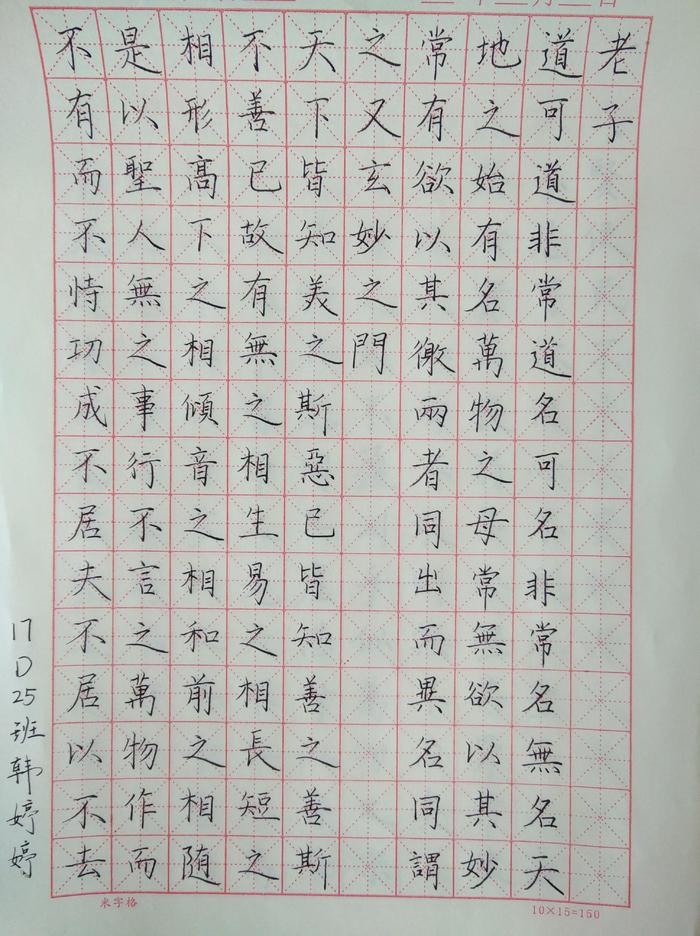 老子
道可道非常道名可名非常名無名天
地之始有名萬物之母常無欲以其妙
常有欲以其徼兩者同出而異名同謂
之又玄妙之門
天下皆知美之斯惡已皆知善之善斯
不善已故有無之相生易之相長短之
相形高下之相傾音之相和前之相随
是以聖人無之事行不言之萬物作而
不有而不恃功成不居夫不居以不去
17D25班韩婷婷
米字格
10×15=150